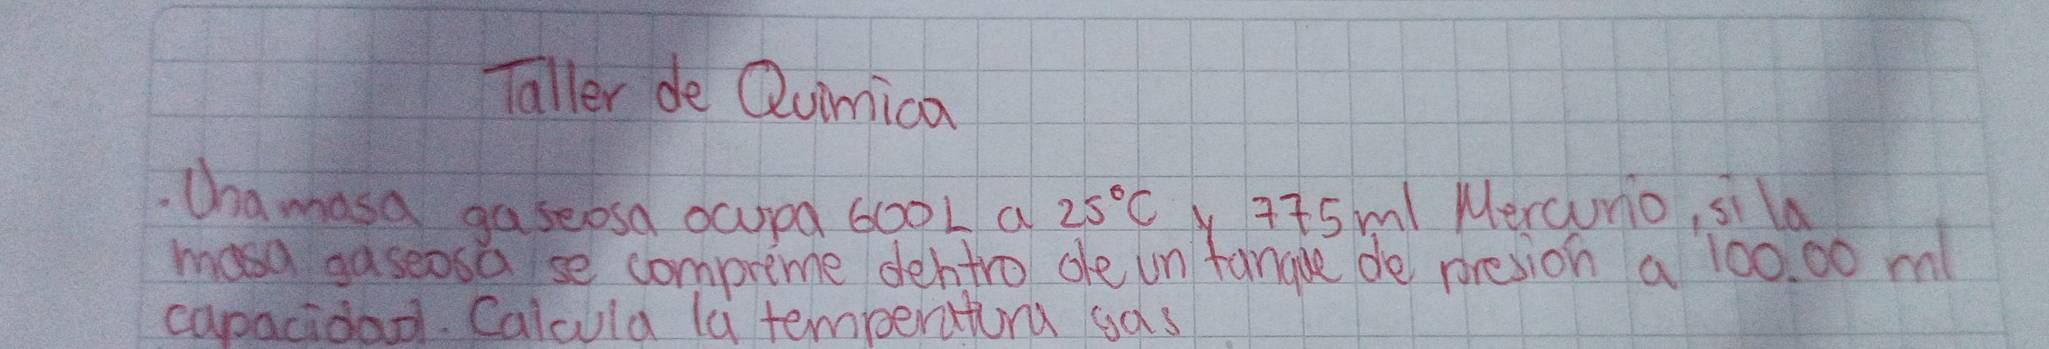 Taller de Quimica
. Una masa gaseosa ocupa 600L a 25°C y 775ml Mercurio, si la
masa gaseosa se compreme dentro de un tanque de presion a 100.00 ml
capacidad. Calcula la temperatura gas